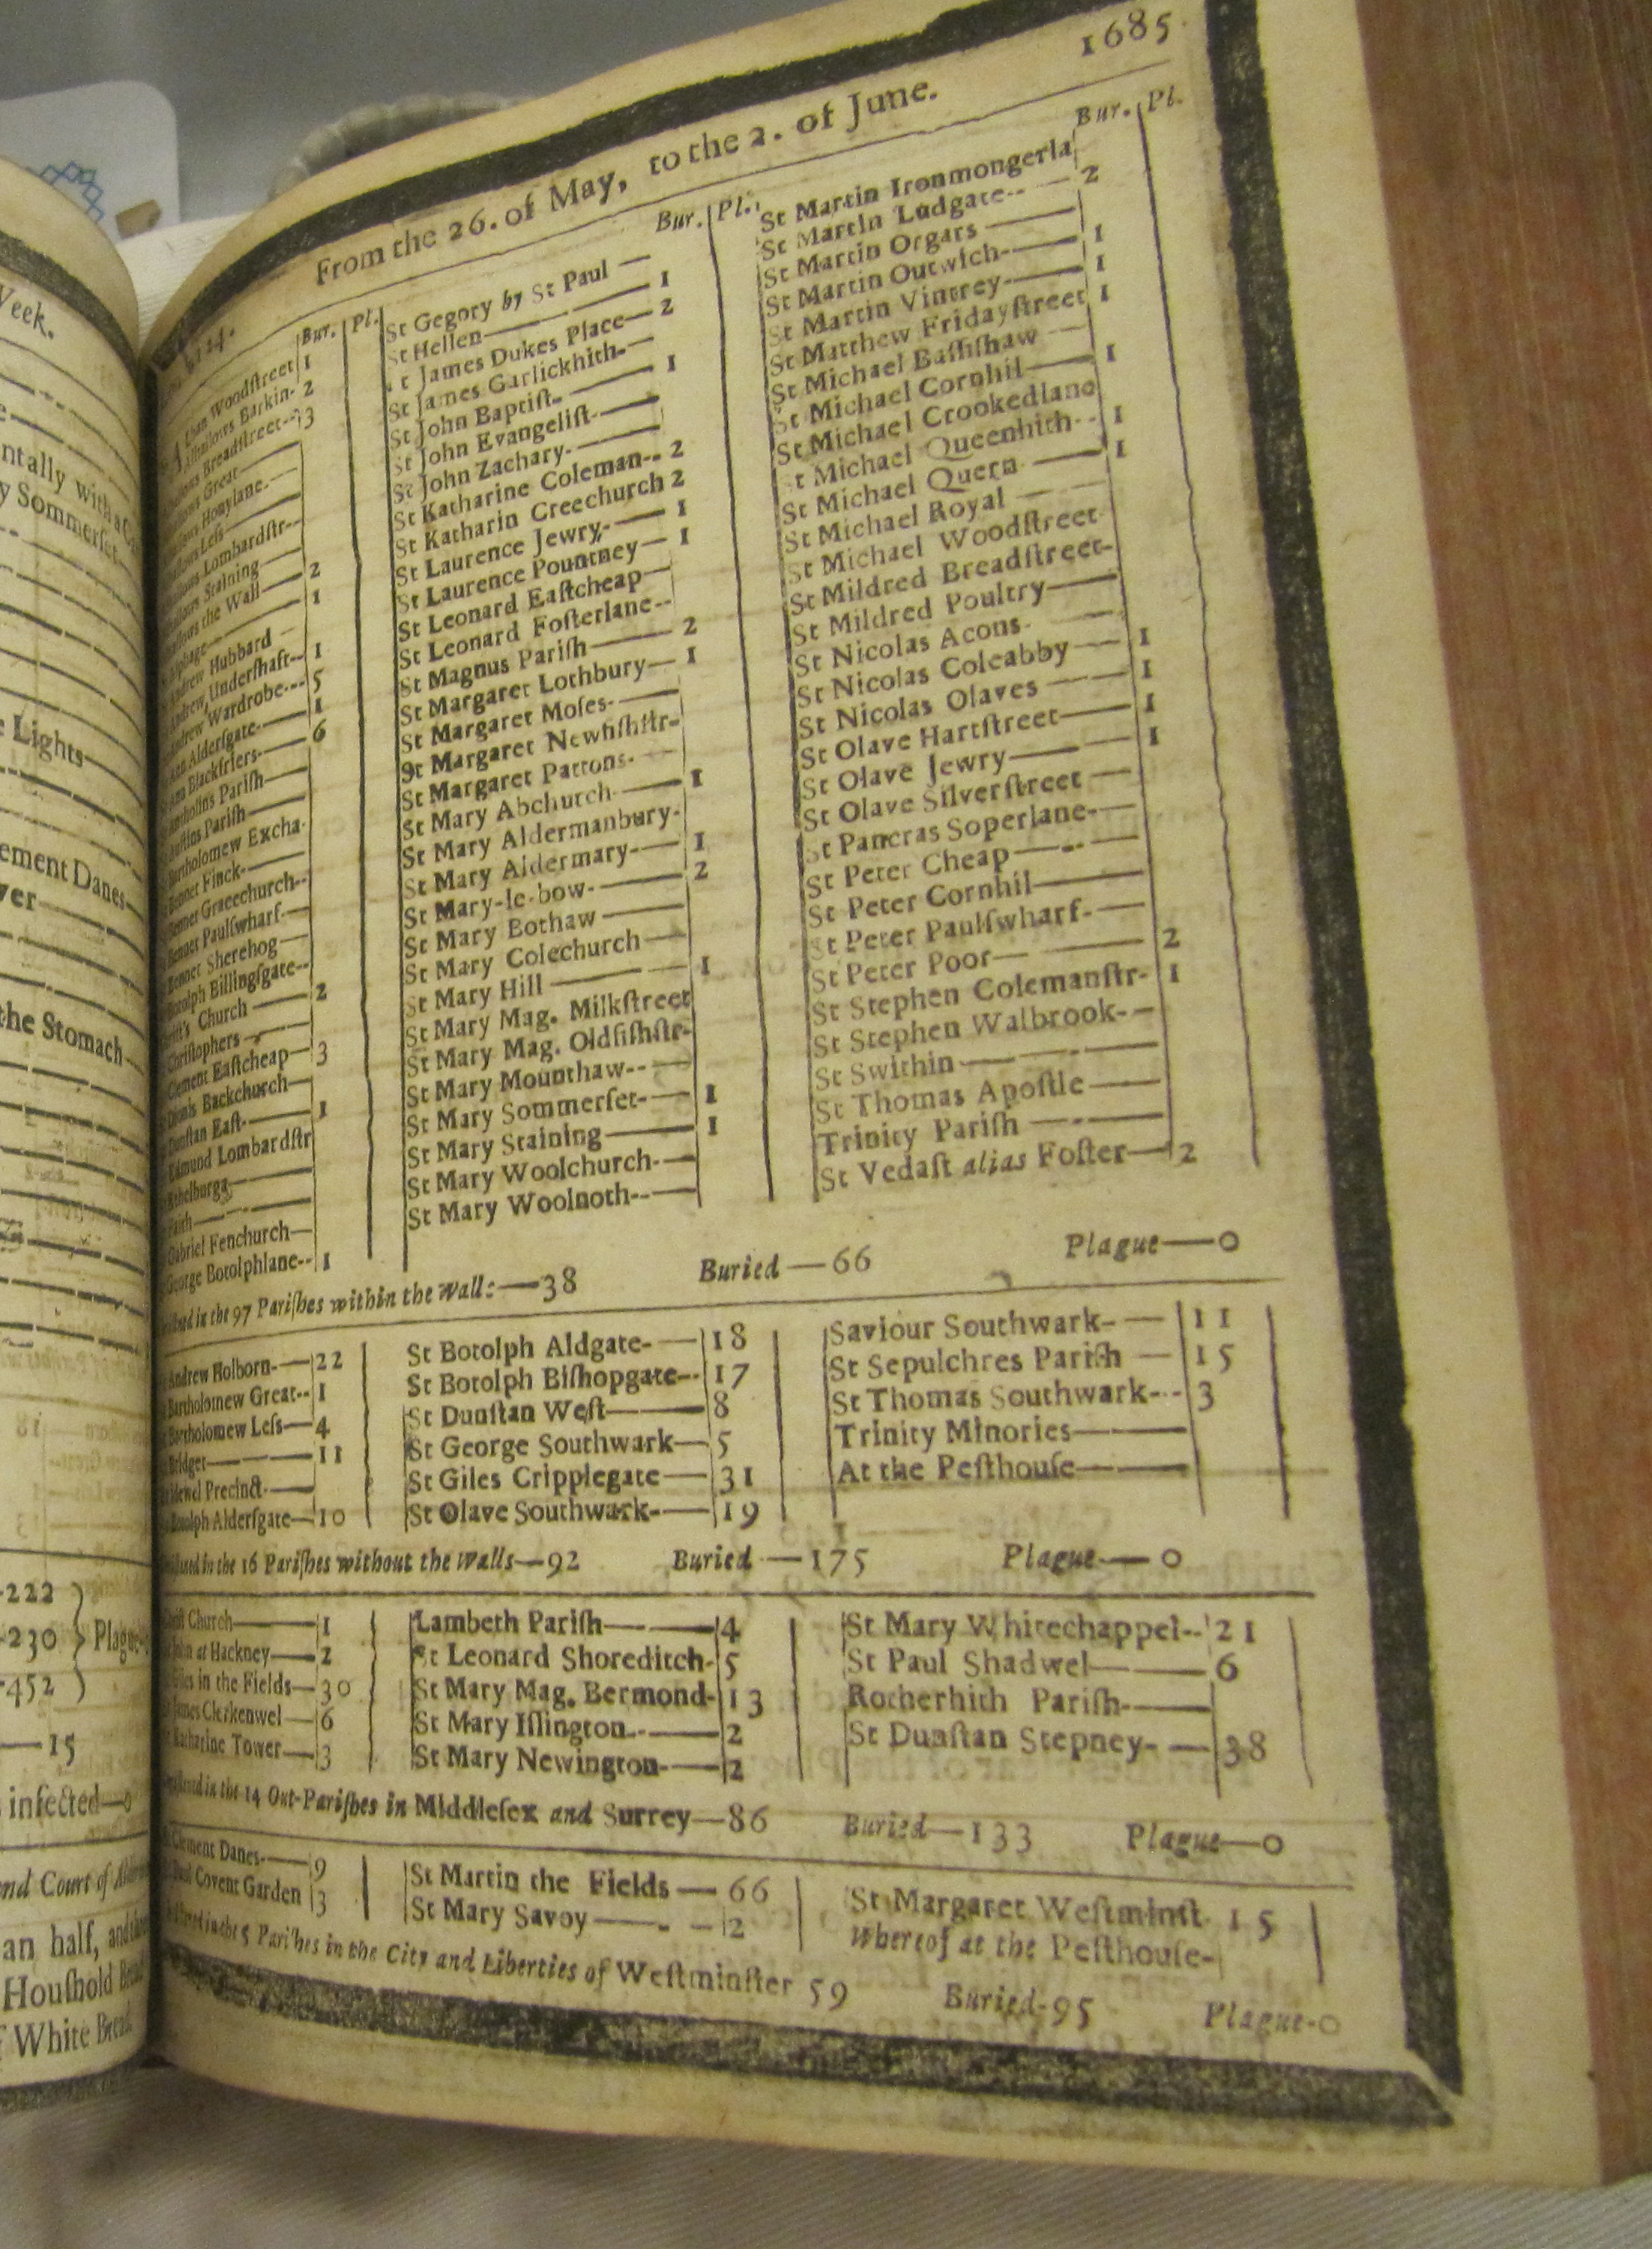 Week.
ntally with a
y Sommerset
Lights
ement Danes
ver
the Stomach
222
230 } Plague
452
15
infected—0
nd Court of
an half, and
Houshold
White
1685.
From the 26. of May, to the 2. of June.
Bur. Pl.
Woodstreet 1
Alhallows Barkin- 2
Breadstreet-- 3
Great
Honylane.
Less
Lombardstr--
Staining
the Wall 2
1
Hubbard
Andrew Undershaft-- 1
Andrew Wardrobe--- 5
Ann Aldersgate 1
Ann Blackfriers 6
Parish
Parish
Bartholomew Excha-
Bennet Finck-
Bennet Gracechurch--
Bennet Paulswharf-
Bennet Sherehog
Botolph Billingsgate--
Church 2
Christophers
Clement Eastcheap 3
Dionis Backchurch
Dunstan East 1
Edmund Lombardstr
Ethelburga
Faith
Gabriel Fenchurch
George Botolphlane-- 1
Bur. Pl.
St Gegory by St Paul
St Hellen 1
St James Dukes Place 2
St James Garlickhith-
St John Baptist- 1
St John Evangelist-
St John Zachary-
St Katharine Coleman-- 2
St Katharin Creechurch 2
St Laurence Jewry- 1
St Laurence Pountney 1
St Leonard Eastcheap
St Leonard Fosterlane--
St Magnus Parish 2
St Margaret Lothbury 1
St Margaret Moses-
St Margaret Newfishstr-
St Margaret Pattons-
St Mary Abchurch 1
St Mary Aldermanbury-
St Mary Aldermary 1
St Mary-le-bow- 2
St Mary Bothaw
St Mary Colechurch
St Mary Hill 1
St Mary Mag. Milkstreet
St Mary Mag. Oldfishstr-
St Mary Mounthaw--
St Mary Sommerset- 1
St Mary Staining 1
St Mary Woolchurch-
St Mary Woolnoth--
Bur. Pl.
St Martin Ironmongerla
St Martin Ludgate-- 2
St Martin Orgars
St Martin Outwich- 1
St Martin Vintrey- 1
St Matthew Fridaystreet 1
St Michael Bassishaw
St Michael Cornhil 1
St Michael Crookedlane
St Michael Queenhith- 1
St Michael Quern 1
St Michael Royal
St Michael Woodstreet
St Mildred Breadstreet-
St Mildred Poultry
St Nicolas Acons
St Nicolas Coleabby 1
St Nicolas Olaves 1
St Olave Hartstreet 1
St Olave Jewry 1
St Olave Silverstreet
St Pancras Soperlane-
St Peter Cheap
St Peter Cornhil
St Peter Paulswharf-
St Peter Poor 2
St Stephen Colemanstr- 1
St Stephen Walbrook-
St Swithin
St Thomas Apostle
Trinity Parish
St Vedast alias Foster 2
in the 97 Parishes within the Walls—38 Buried—66 Plague—0
Andrew Holborn- 22
Bartholomew Great-- 1
Bartholomew Less 4
Bridget 11
Bridewel Precinct
Botolph Aldersgate 10
St Botolph Aldgate- 18
St Botolph Bishopgate-- 17
St Dunstan West 8
St George Southwark 5
St Giles Cripplegate 31
St Olave Southwark- 19
Saviour Southwark- 11
St Sepulchres Parish 15
St Thomas Southwark-- 3
Trinity Minories
At the Pesthouse
in the 16 Parishes without the Walls—92 Buried—175 Plague—0
Christ Church 1
John at Hackney 2
Giles in the Fields 30
James Clerkenwel 6
Katharine Tower 3
Lambeth Parish 4
St Leonard Shoreditch- 5
St Mary Mag. Bermond- 13
St Mary Islington 2
St Mary Newington- 2
St Mary Whitechappel-- 21
St Paul Shadwel 6
Rotherhith Parish-
St Dunstan Stepney- 38
in the 14 Out-Parishes in Middlesex and Surrey—86 Buried—133 Plague—0
Clement Danes- 9
Paul Covent Garden 3
St Martin the Fields 66
St Mary Savoy 2
St Margaret Westminst 15
Whereof at the Pesthouse-
in the 5 Parishes in the City and Liberties of Westminster 59 Buried-95 Plague-0